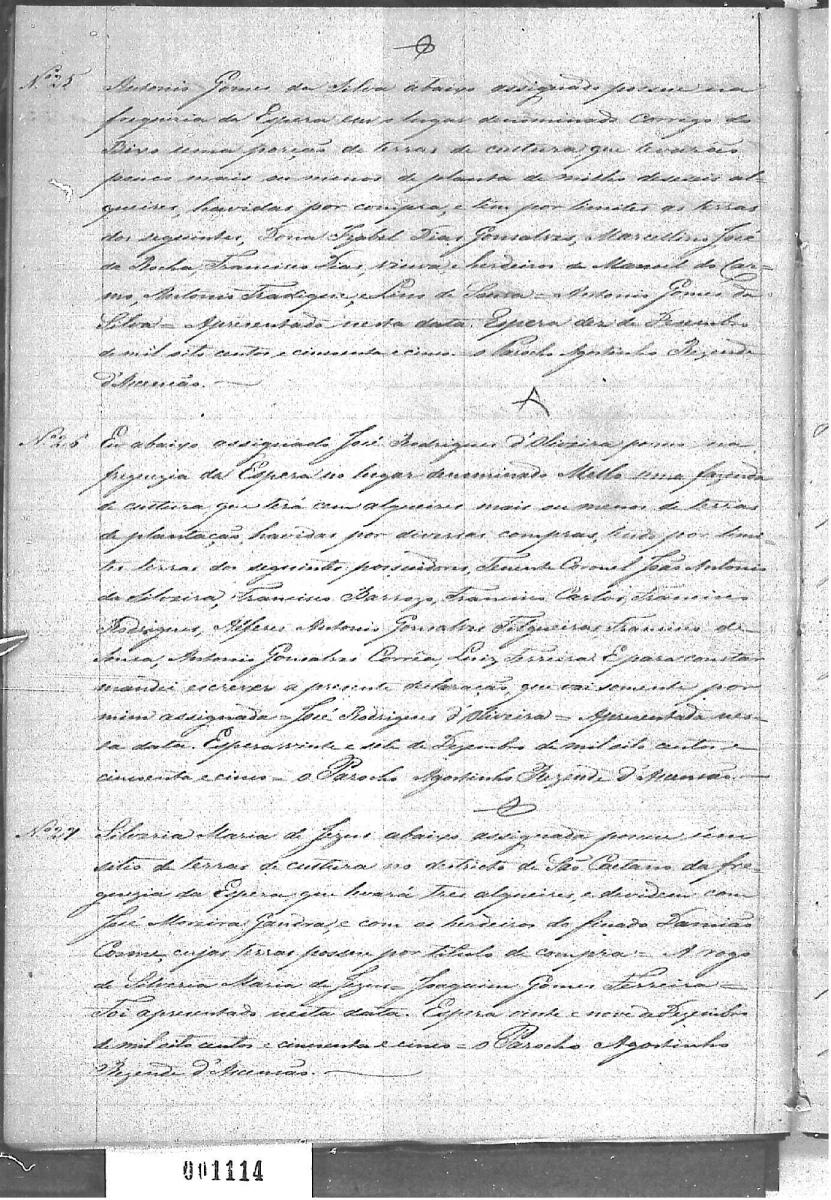 Nº 25 Antonio Gomes da Silva abaixo assignado possue na
freguezia da Espera em o lugar denominado Corrego do
Bixo uma porção de terras de cultura que levarão
pouco mais ou menos de planta de milho deseseis al-
queires, havidas por compra, e tem por limites as terras
dos seguintes, Dona Izabel Dias Gonsalves, Marcellino José
da Rocha Francisco Dias, viuva e herdeiros de Manoel do Car-
mo, Antonio Fradique, e Lino de Souza = Antonio Gomes da
Silva = Apresentado nesta data. Espera dez de Dezembro
de mil oito centos e cincoenta e cinco. o Parocho Agostinho Rezende
d'Ascenção.
Nº 26 Eu abaixo assignado José Rodrigues d'Oliveira possuo na
freguezia da Espera no lugar denominado Mello uma fazenda
de cultura que terá cem alqueires mais ou menos de terras
de plantação, havidas por diversas compras, tendo por limi-
tes terras dos seguintes possuidores, Tenente Coronel João Antonio
da Silveira, Francisco Barrozo, Francisco Carlos, Francisco
Rodrigues, Alferes Antonio Gonsalves Filgueiras Francisco de
Souza, Antonio Gonsalves Corrêa, Luiz Ferreira. E para constar
mandei escrever a presente declaração, que vai somente por
mim assignada = José Rodrigues d'Oliveira = Apresentada nes-
ta data. Espera vinte e sete de Dezembro de mil oito centos e
cincoenta e cinco = o Parocho Agostinho Rezende d'Ascenção.
Nº 27 Silveria Maria de Jezus abaixo assignada possue um
sitio de terras de cultura no districto de São Caetano da fre-
guezia da Espera, que levará tres alqueires, e devidem com
José Moreira Gandra, e com os herdeiros do finado Damião
Cosme, cujas terras possue por titulo de compra = A rogo
de Silveria Maria de Jezus = Joaquim Gomes Ferreira =
Foi apresentado nesta data. Espera vinte e nove de Dezembro
de mil oito centos e cincoenta e cinco = o Parocho Agostinho
Rezende d'Ascenção.
001114